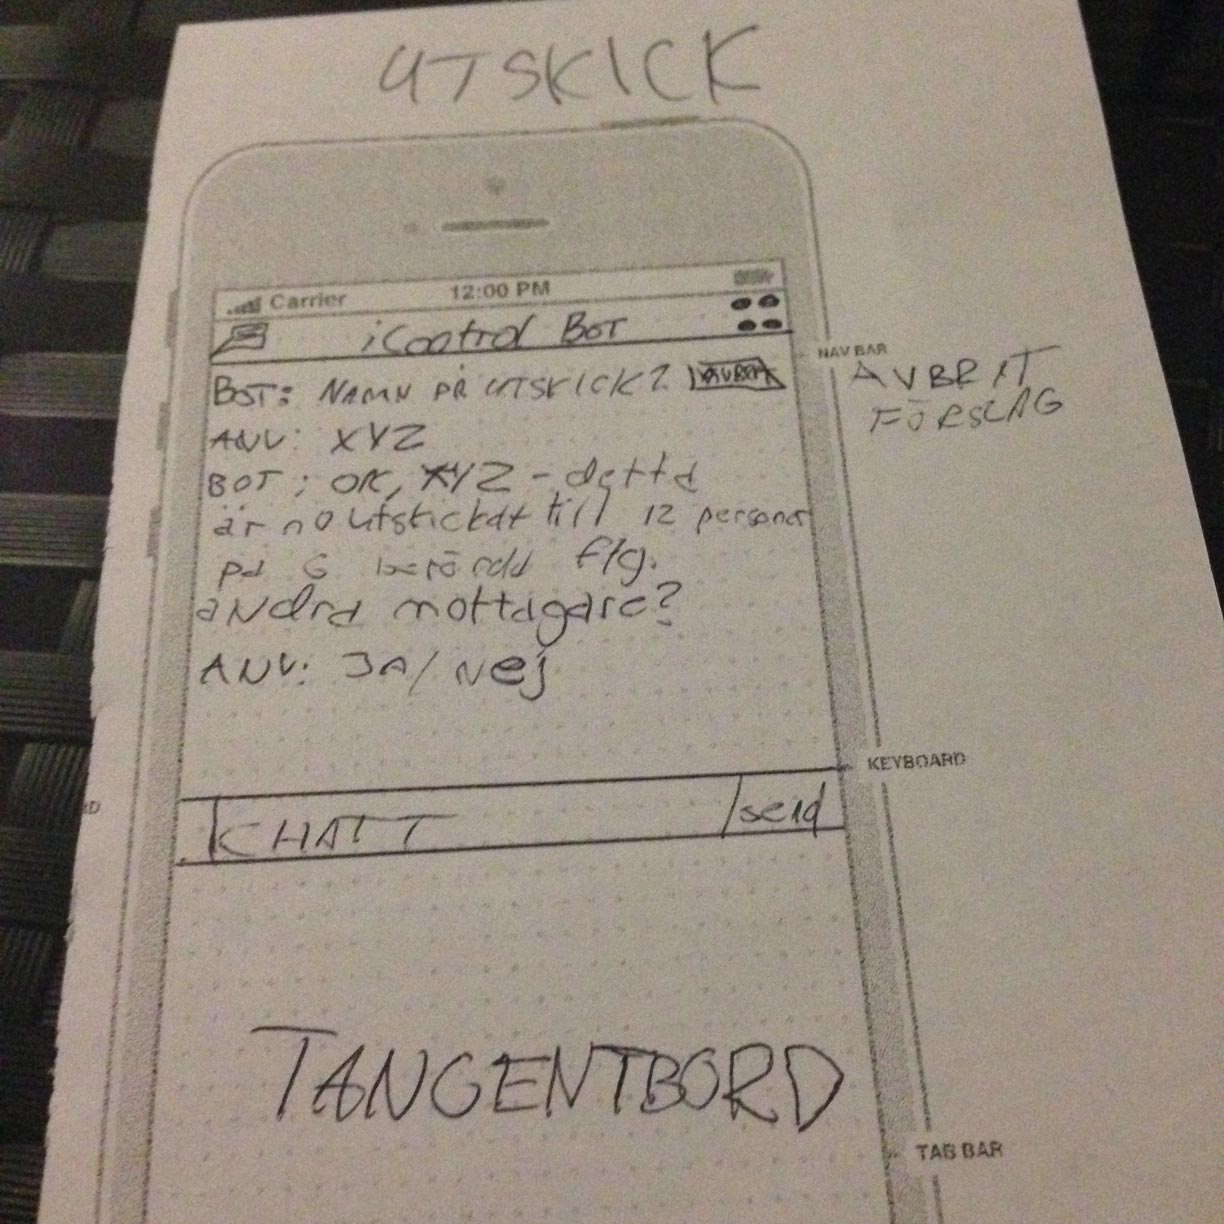 UTSKICK
Carrier 12:00 PM
iControl BOT
NAV BAR
BOT: NAMN PÅ UTSKICK?
AVBRYT
FÖRSLAG
ANV: XYZ
BOT: OK, XYZ - detta
är nu utskickat till 12 personer
på 6 berörda ftg.
andra mottagare?
ANV: JA/Nej
KEYBOARD
CHATT send
TANGENTBORD
TAB BAR